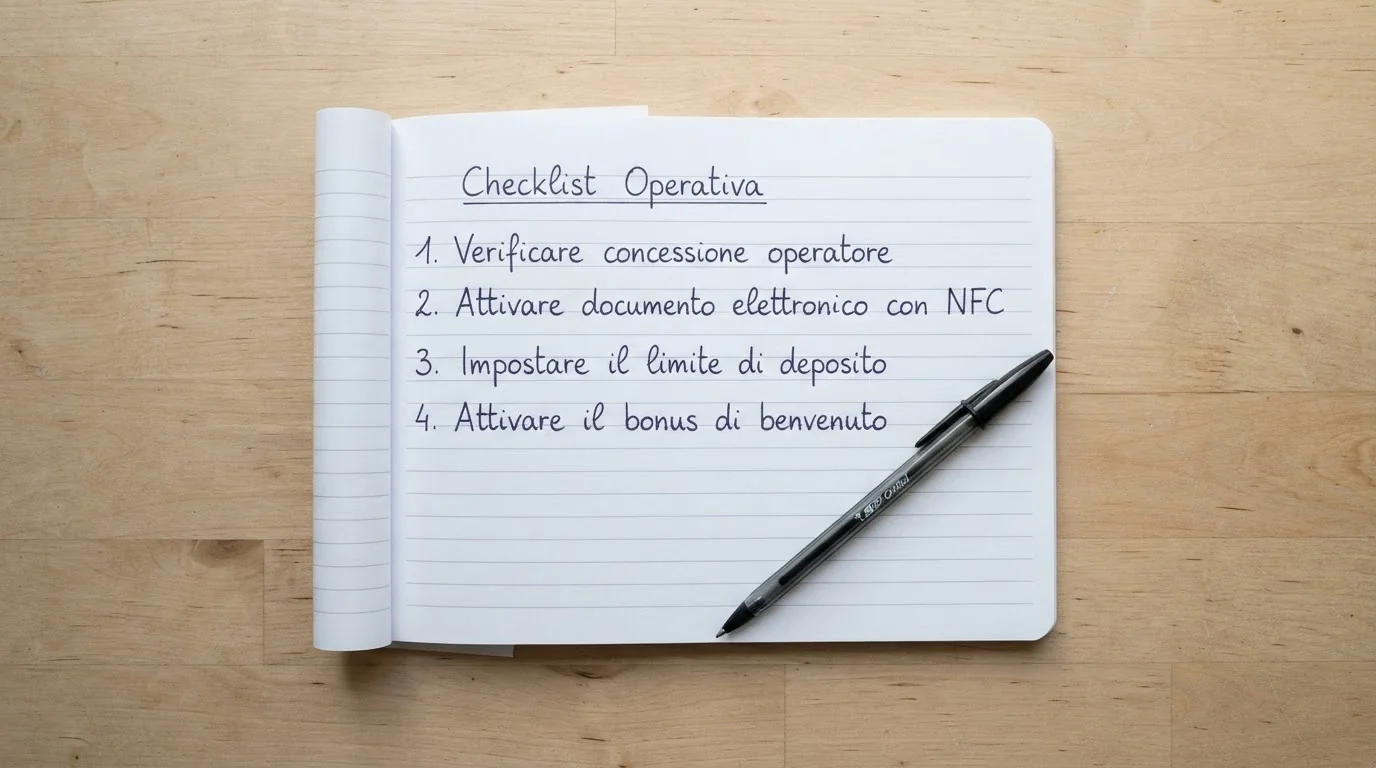 Checklist Operativa
1. Verificare concessione operatore
2. Attivare documento elettronico con NFC
3. Impostare il limite di deposito
4. Attivare il bonus di benvenuto